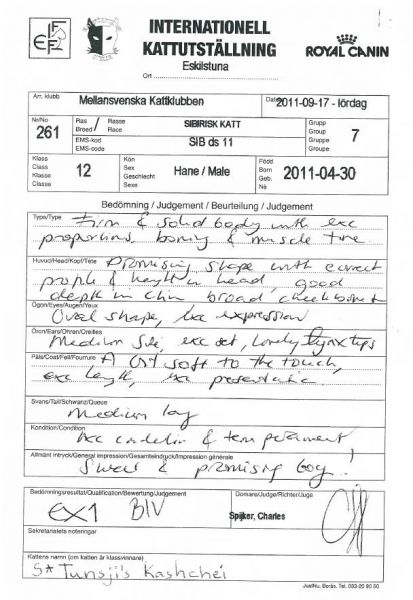 FIFe
INTERNATIONELL
KATTUTSTÄLLNING
Eskilstuna
Ort
ROYAL CANIN
Arr. klubb
Mellansvenska Kattklubben
Datum 2011-09-17 - lördag
Nr/No
261
Ras / Rasse
Breed / Race
SIBIRISK KATT
EMS-kod
EMS-code
SIB ds 11
Grupp
Group
Gruppe
Groupe
7
Klass
Class
Klasse
Classe
12
Kön
Sex
Geschlecht
Sexe
Hane / Male
Född
Born
Geb.
Né
2011-04-30
Bedömning / Judgement / Beurteilung / Judgement
Type/Type
Firm & solid body with exc
proportions, boning & muscle tone.
Huvud/Head/Kopf/Tête
Promising shape with correct
profile & height in head, good
depth in chin, broad cheekbones
Ögon/Eyes/Augen/Yeux
Oval shape, exc expression
Öron/Ears/Ohren/Oreilles
Medium size, exc set, lovely lynxtips
Päls/Coat/Fell/Fourrure
A bit soft to the touch,
exc length, exc presentation.
Svans/Tail/Schwanz/Queue
Medium long
Kondition/Condition
Exc condition & temperament
Allmänt intryck/General impression/Gesamteindruck/Impression générale
Sweet & promising boy!
Bedömningsresultat/Qualification/Bewertung/Judgement
EX1 BIV
Domare/Judge/Richter/Juge
Spijker, Charles
Sekretariatets noteringar
Kattens namn (om katten är klassvinnare)
S* Tunsji's Kashchei
JustNu, Borås. Tel. 033-20 90 50